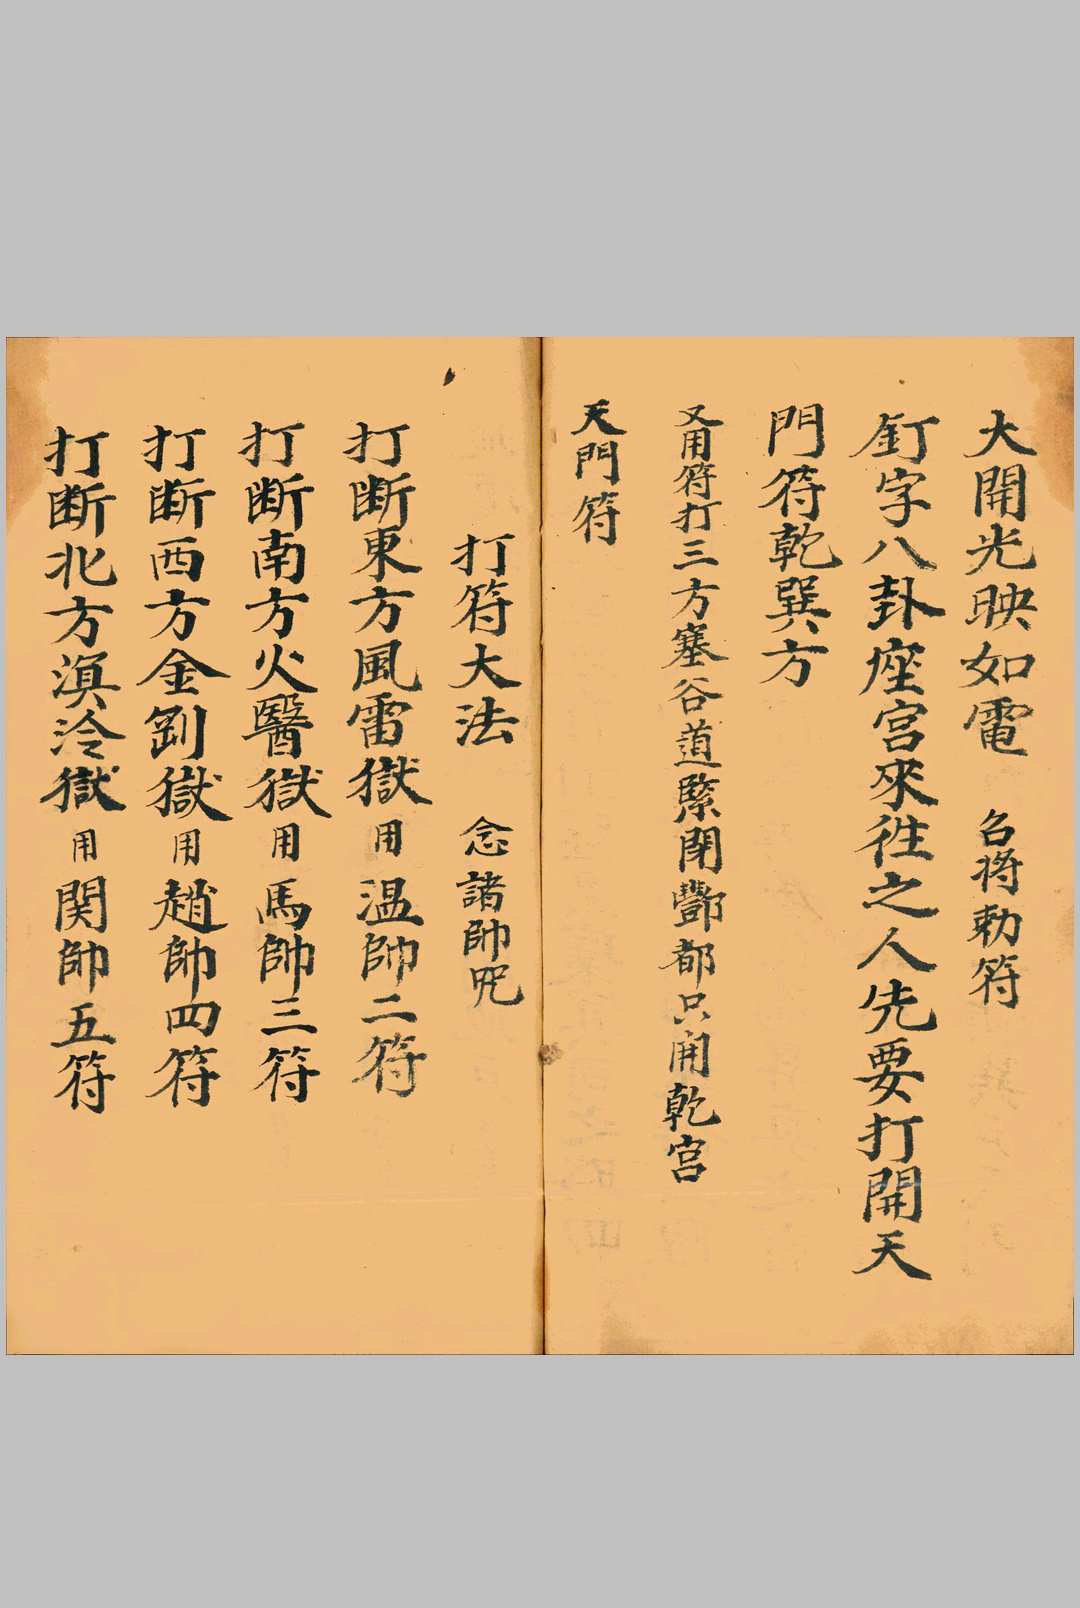 大開光映如電　名将勅符
釘字八卦座宮來往之人先要打開天
門符乾巽方
又用符打三方塞谷道緊閉酆都只開乾宮
天門符
打符大法　念諸帥咒
打断東方風雷獄用温帥二符
打断南方火醫獄用馬帥三符
打断西方金劉獄用趙帥四符
打断北方溟泠獄用関帥五符